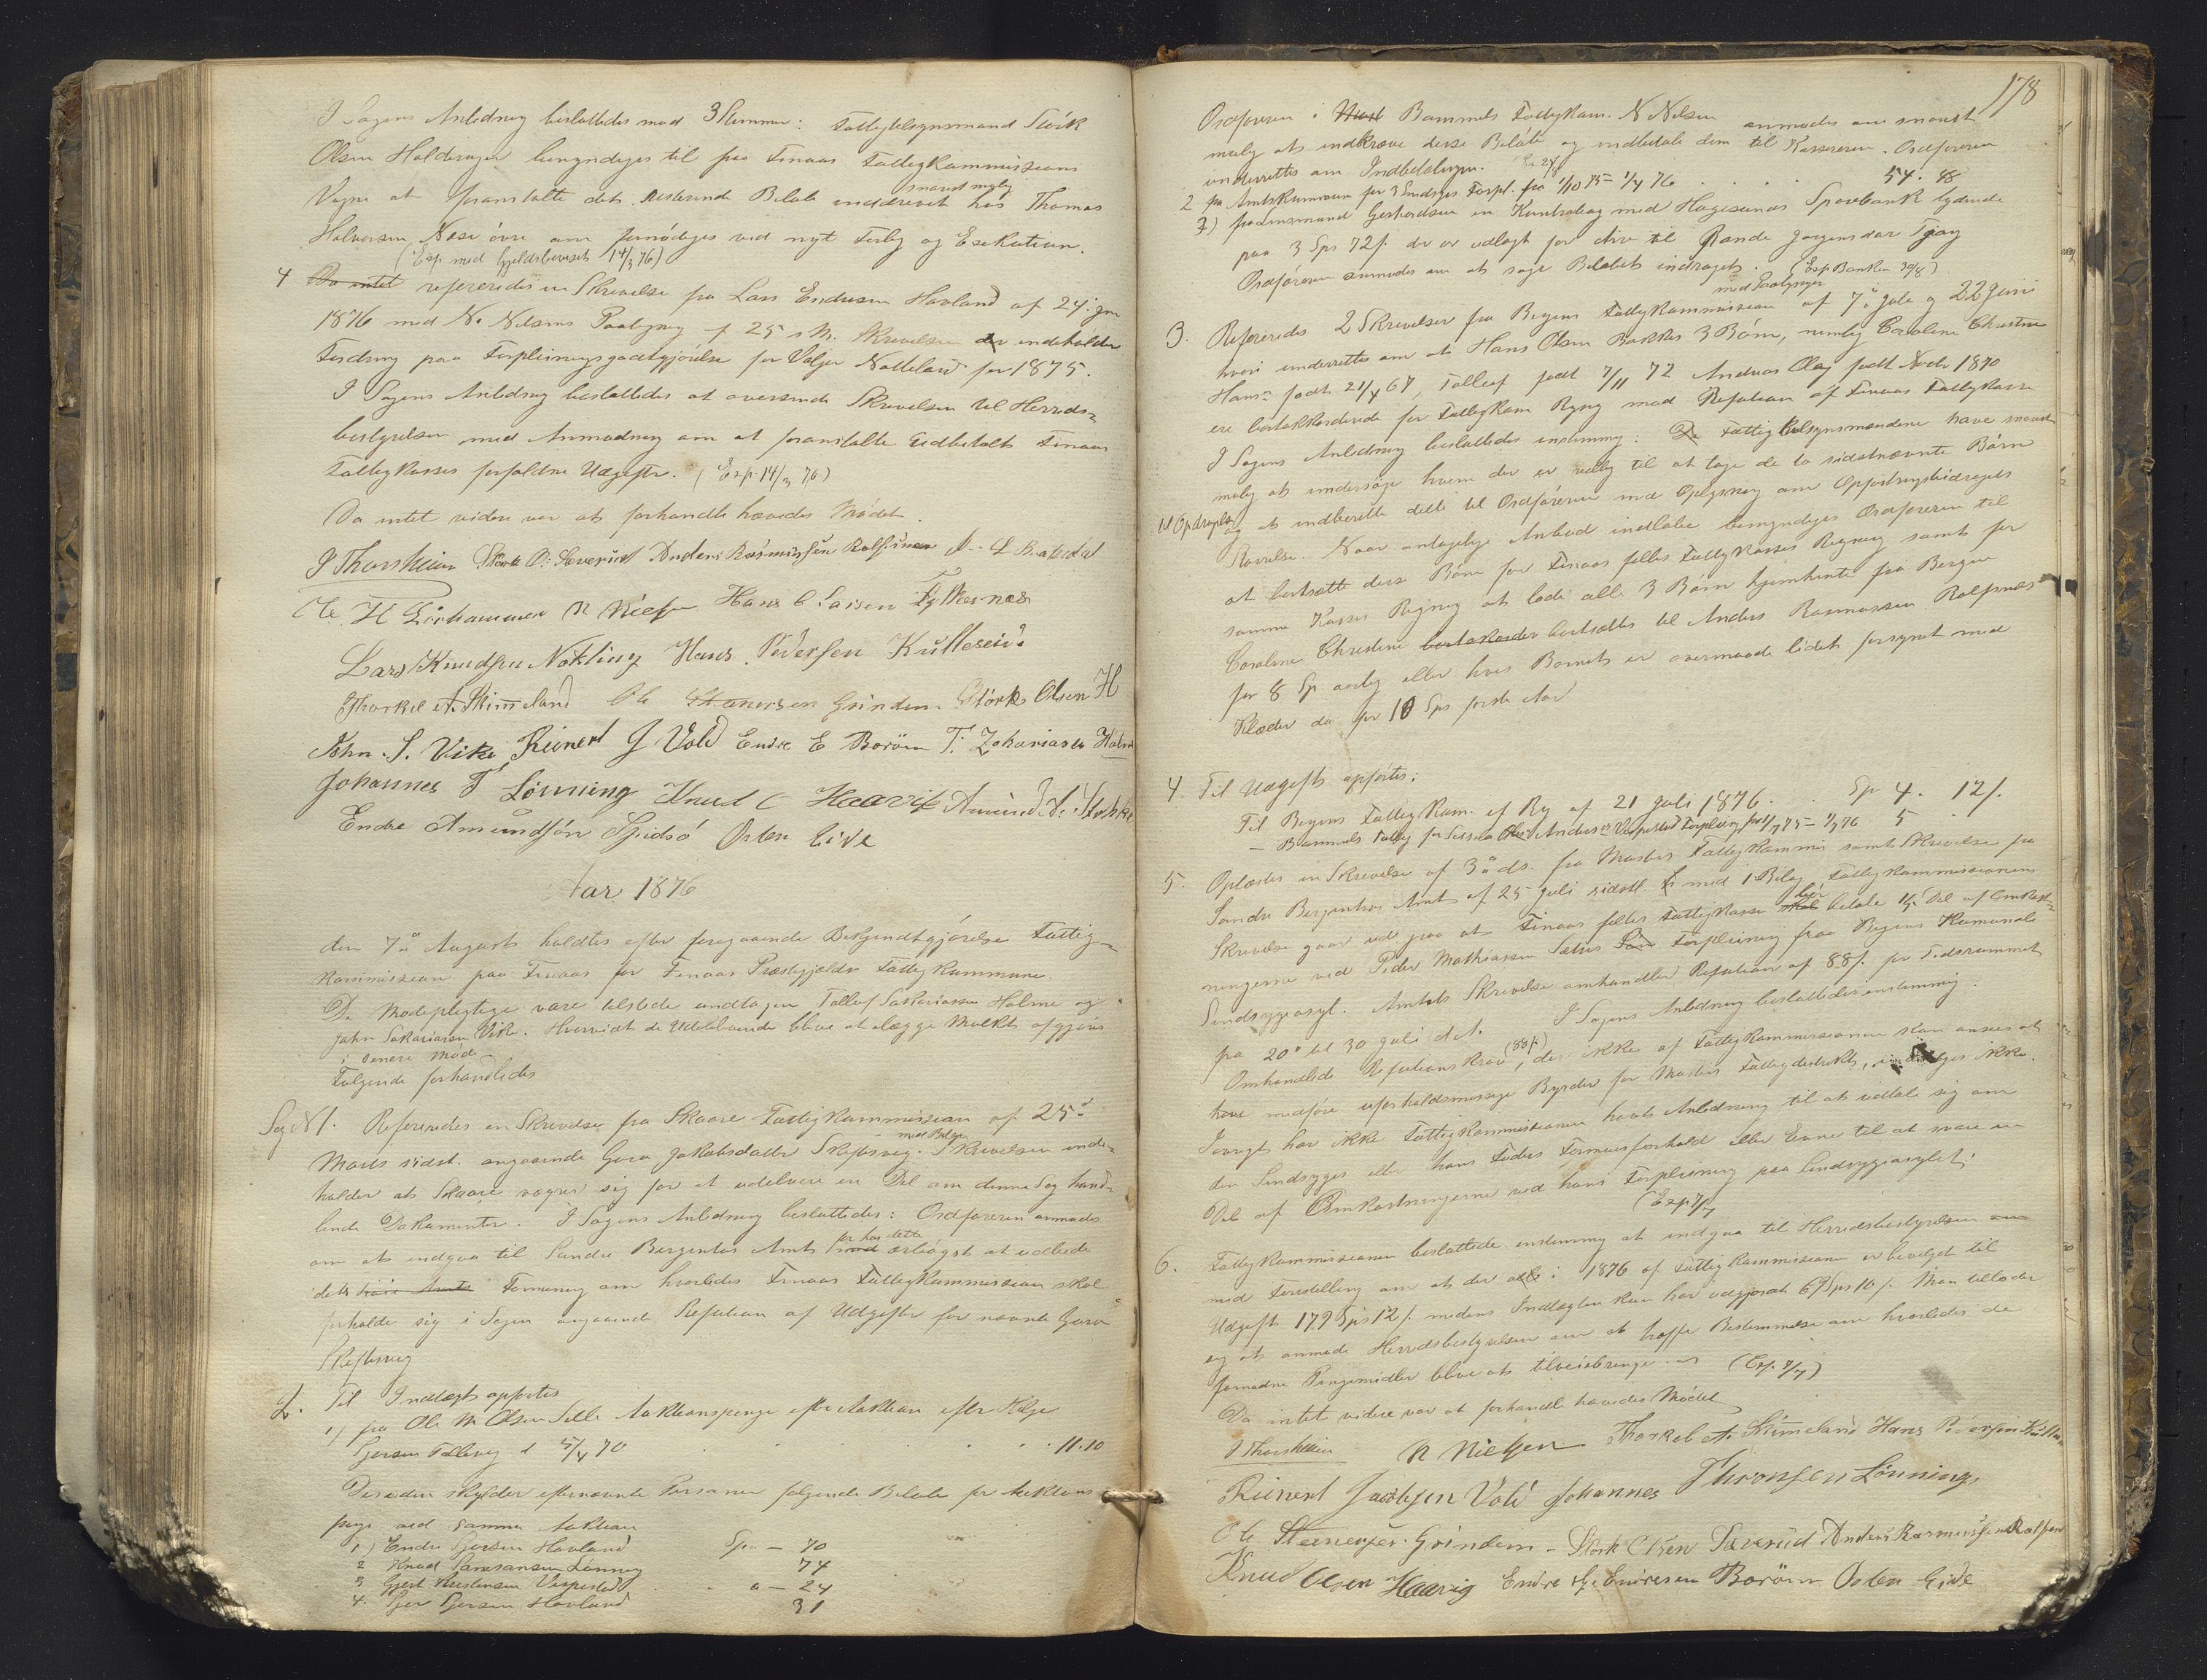 I Sagens Anledning besluttedes med 3 Stemmer: Fattigtilsynsmand Störk
Olsen Holdvager bemyndiges til paa Finaas Fattigkommissions
Vegne at foranstalte det resterende Beløb snarest mulig inddrevet hos Thomas
Halvorsen Næse övre om fornödiges ved nyt Forlig og Exekution.
(Exp med Gjeldsbeviset 14/3 76)
4 Da intet refereredes en Skrivelse fra Lars Endresen Havland af 24. Jan
1876 med N. Nilsens Paategning af 25 s.M. Skrivelsen der indeholder
Fordring paa Forpleiningsgodtgjörelse for Valger Nottland for 1875.
I Sagens Anledning besluttedes at oversende Skrivelsen til Herreds-
bestyrelsen med Anmodning om at foranstalte Udbetalt Finaas
Fattigkasses forfaldne Udgifter. (Exp. 14/3 76)
Da intet videre var at forhandle hævedes Mödet.
J Thorsheim Störk O. Sæverud Anders Rasmussen Rolfsnes
Ole H N Nielsen Hans C Larsen Fylkesnes
Lars Knudsen Nökling Hans Pedersen Kulleseid
Thorkel A. Kimmeland Ole Steenersen Grindem Störk Olsen H
John S. Vike Reinert J Vold Endre E Boröen T. Zakariasen Holm
Johannes T Lönning Knud O Haavig Amund
Endre Amundsön Spidsö Osten Eide
Aar 1876
den 7de August holdtes efter foregaaende Bekjendtgjörelse Fattig-
kommission paa Finaas for Finaas Præstegjelds Fattigkommune.
De Mödepligtige vare tilstede undtagen Tollef Sakariassen Holme og
John Sakariassen Vike. Hvorvidt de Udeblivende blive at ilægge Mulkt afgjöres
i senere Möde.
Følgende forhandledes
Sag No 1. Refereredes en Skrivelse fra Skaare Fattigkommission af 25de
Marts sidst. angaaende Gura Jakobsdatter Skeftesvig. med Bilage Skrivelsen inde-
holder at Skaare vægrer sig for at udelvere en Del om denne Sag hand-
lende Dokumenter. I Sagens Anledning besluttedes: Ordføreren anmodes
om at indgaa til Søndre Bergenhus Amt med ærbögst at udbede
dets höie Amts Formening om hvorledes Finaas Fattigkommission skal
forholde sig i Sagen angaaende Refusion af Udgifter for nævnte Gura
Skeftesvig
2. Til Indtægt opførtes
1) fra Ole M Olsen Selle Auktionspenge efter Auktion efter Helge
Gjersen Tællevig d 5/4 70 . . . 11.10
Desuden skylder efternævnte Personer følgende Beløb for Auktions-
penge ved samme Auktion
1) Endre Gjersen Havland Sp. — 70
2 Knud Samsonsen Lönning 74
3 Gjert Kristensen Vespestad " — 24
4. Gjer Gjersen Havland 31
178
Ordføreren i Bommels Fattigkom. N Nilsen anmodes om snarest
mulig at indkræve disse Beløb og indbetale dem til Kassereren. Ordføreren
underrettes om Indbetalingen.
2 fra Amtskommunen for 3 Sindsyges Forpl. fra 1/10 75 - 1/4 76 . . . 54. 48
3) fra Lensmand Gerhardsen en Kontrabog med Haugesunds Sparebank lydende
paa 3 Sps 72 s. der er udlagt for Arv til Rande Jørgensdar Tjong
Ordføreren anmodes om at søge Beløbet inddraget. (Exp Banken 30/8)
3. Refereredes 2 Skrivelser fra Bergens Fattigkommission med Paategninger af 7de Juli og 22 Juni
hvori underrettes om at Hans Olsen Bakkes 3 Börn, nemlig Caroline Christine
Hans: født 21/4 67, Tollef født 7/11 72 Andreas Olaj født Novb 1870
ere bortakkorderede for Fattigkom Regng mod Refusion af Finaas Fattigkasse
I Sagens Anledning besluttedes enstemmig: De Fattigtilsynsmændene have snarest
mulig at undersøge hvem der er villig til at tage de to sidstnævnte Börn
til Opdragelse og at indberette dette til Ordføreren med Oplysning om Opfostringsbidragets
Størrelse. Naar antagelige Anbud indløbe bemyndiges Ordføreren til
at bortsætte disse Börn for Finaas felles Fattigkasses Regning samt for
samme Kasses Regning at lade alle 3 Börn hjemhente fra Bergen
Caroline Christine bortakkorder bortsættes til Anders Rasmussen Rolfsnes
for 8 Sp aarlig eller hvis Barnet er overmaade lidet forsynet med
Klæder da for 10 Sps første Aar
4. Til Udgift opførtes:
Til Bergens Fattigkom. ef Rg af 21 Juli 1876. . . Sp 4. 12 s.
— Bommels Fattig for Sissela Andersdr Vespestad Forpleining fra 1/7 75 - 1/7 76 5 .
5. Oplæstes en Skrivelse af 3de ds. fra Mosters Fattigkommis samt Skrivelse fra
Søndre Bergenhus Amt af 25 Juli sidstl. med 1 Bilag. Fattigkommissionens
Skrivelse gaar ud paa at Finaas felles Fattigkasse skal bör betale 1/5 Del af Omkost-
ningerne ved Peder Mathiassen Sætres Forpleining fra Bergens Kommunale
Sindsygeasyl. Amtets Skrivelse omhandler Refusion af 88 s. for Tidsrummet
fra 20 til 30 Juli d.A. I Sagens Anledning besluttedes enstemmig:
Omhandlede Refusionskrav (88 s.), der ikke af Fattigkommissionen kan ansees at
have medføre uforholdsmæssige Byrder for Mosters Fattigdistrikt, inddrages ikke.
Iøvrigt har ikke Fattigkommissionen havt Anledning til at udtale sig om
den Sindsyges eller hans Faders Formuesforhold eller Evne til at svare en
Del af Omkostningerne ved hans Forpleining paa Sindsygeasylet.
6. Fattigkommissionen besluttede enstemmig at indgaa til Herredsbestyrelsen
med Forestilling om at der alt i 1876 af Fattigkommissionen er bevilget til
Udgift 179 Sps 12 s. medens Indtægten kun har udgjort 69 Sps 10 s. Man tillader
sig at anmode Herredsbestyrelsen om at træffe Bestemmelse om hvorledes de
fornødne Pengemidler blive at tilveiebringe.
Da intet videre var at forhandle hævedes Mödet
J Thorsheim N Nielsen Thorkel A. Kimmeland Hans Pedersen
Reinert Jacobsen Vold Johannes Thronsen Lönning
Ole Steenersen Grindem - Störk Olsen Sæverud Anders Rasmussen Rolfsnes
Knud Olsen Haavig Endre Endresen Boröen Osten Eide